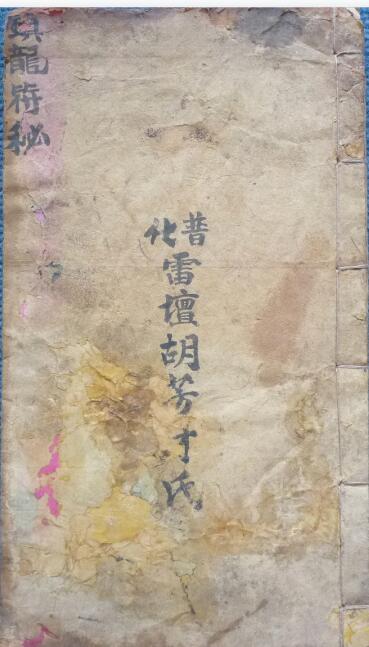 普化
雷壇胡芳才氏
鎮龍符秘